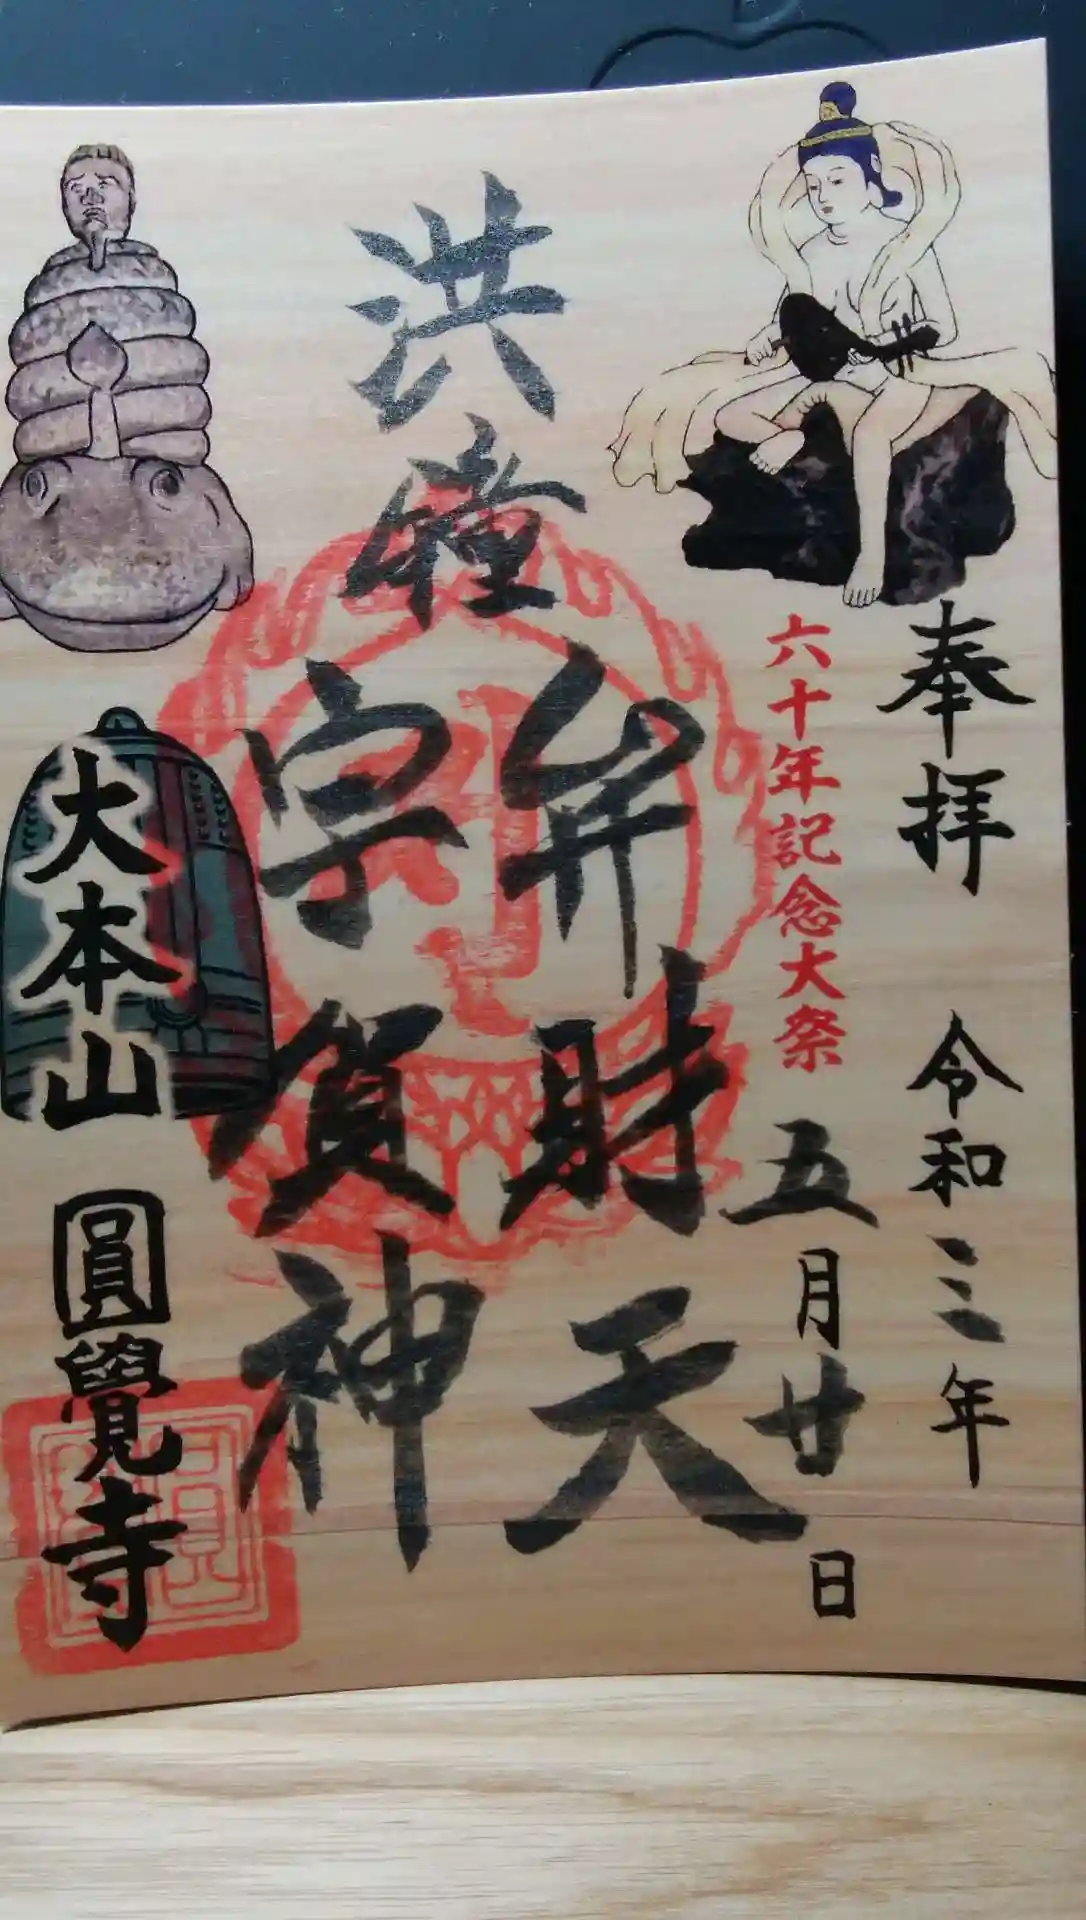 奉拝 令和三年
五月廿日
六十年記念大祭
洪鐘
弁財天
宇賀神
大本山 圓覺寺